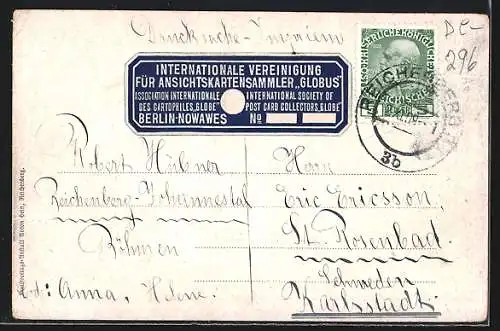 Drucksache-Imprimé
De-
296
INTERNATIONALE VEREINIGUNG
FÜR ANSICHTSKARTENSAMMLER „GLOBUS"
ASSOCIATION INTERNATIONALE INTERNATIONAL SOCIETY OF
DES CARTOPHILES „GLOBE" POST CARD COLLECTORS „GLOBE"
BERLIN-NOWAWES No
KAISERLICHE KÖNIGLICHE
REICHENBERG
3b
Robert Hübner
Reichenberg-Johannestal
Böhmen
Anna, Helene.
Herrn
Eric Ericsson,
St. Rosenbad.
Schweden
Karlstadt.